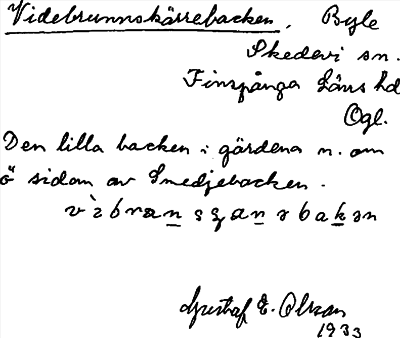 Videbrunnskärrebacken. Byle
Skedevi sn.
Finspånga läns hd
Ögl.
Den lilla backen i gärdena n. om
ö sidan av Smedjebacken.
Gustaf E. Olsson
1933